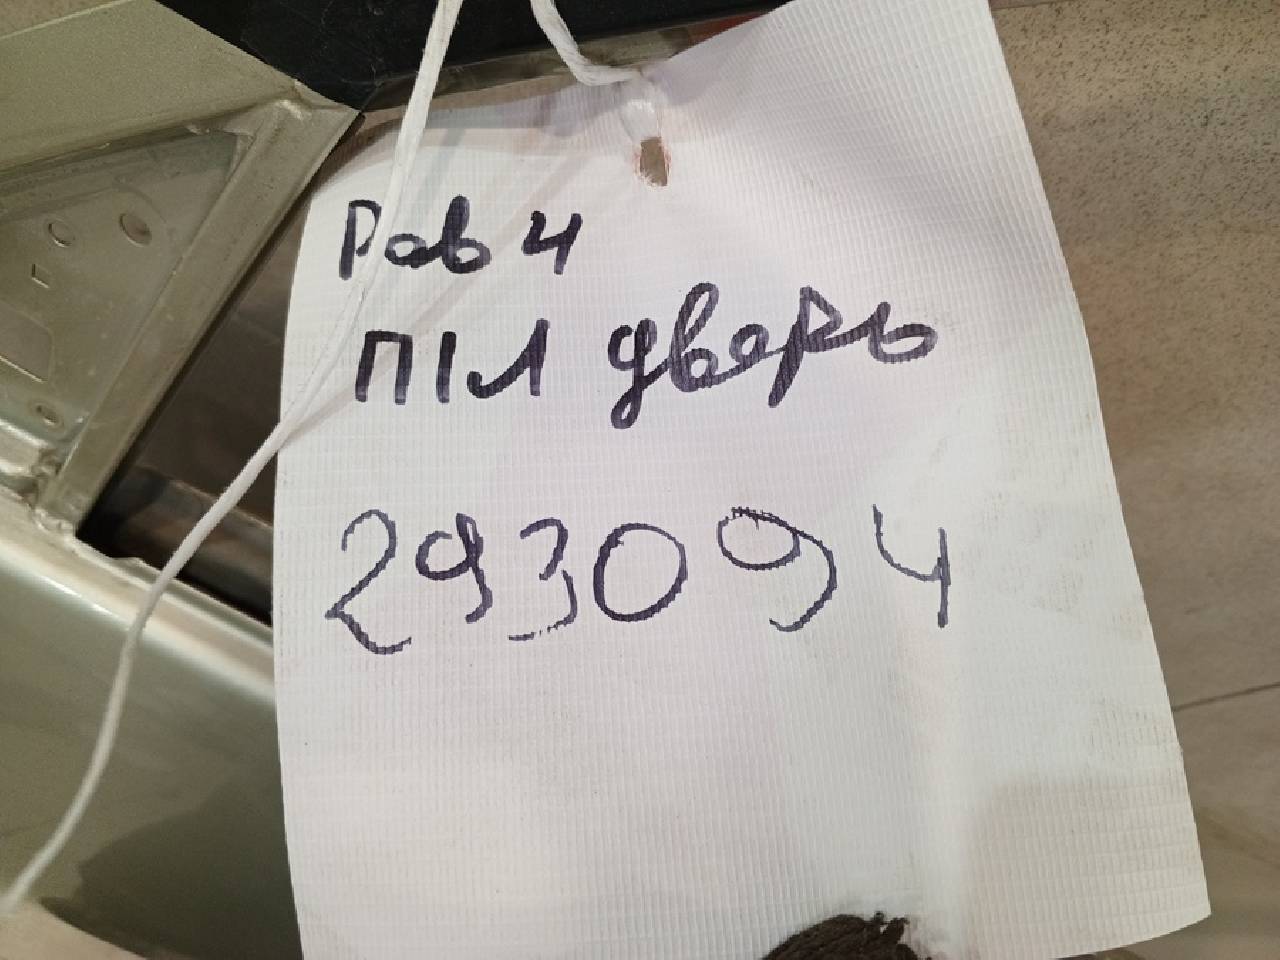 Рав 4
П1Л дверь
293094